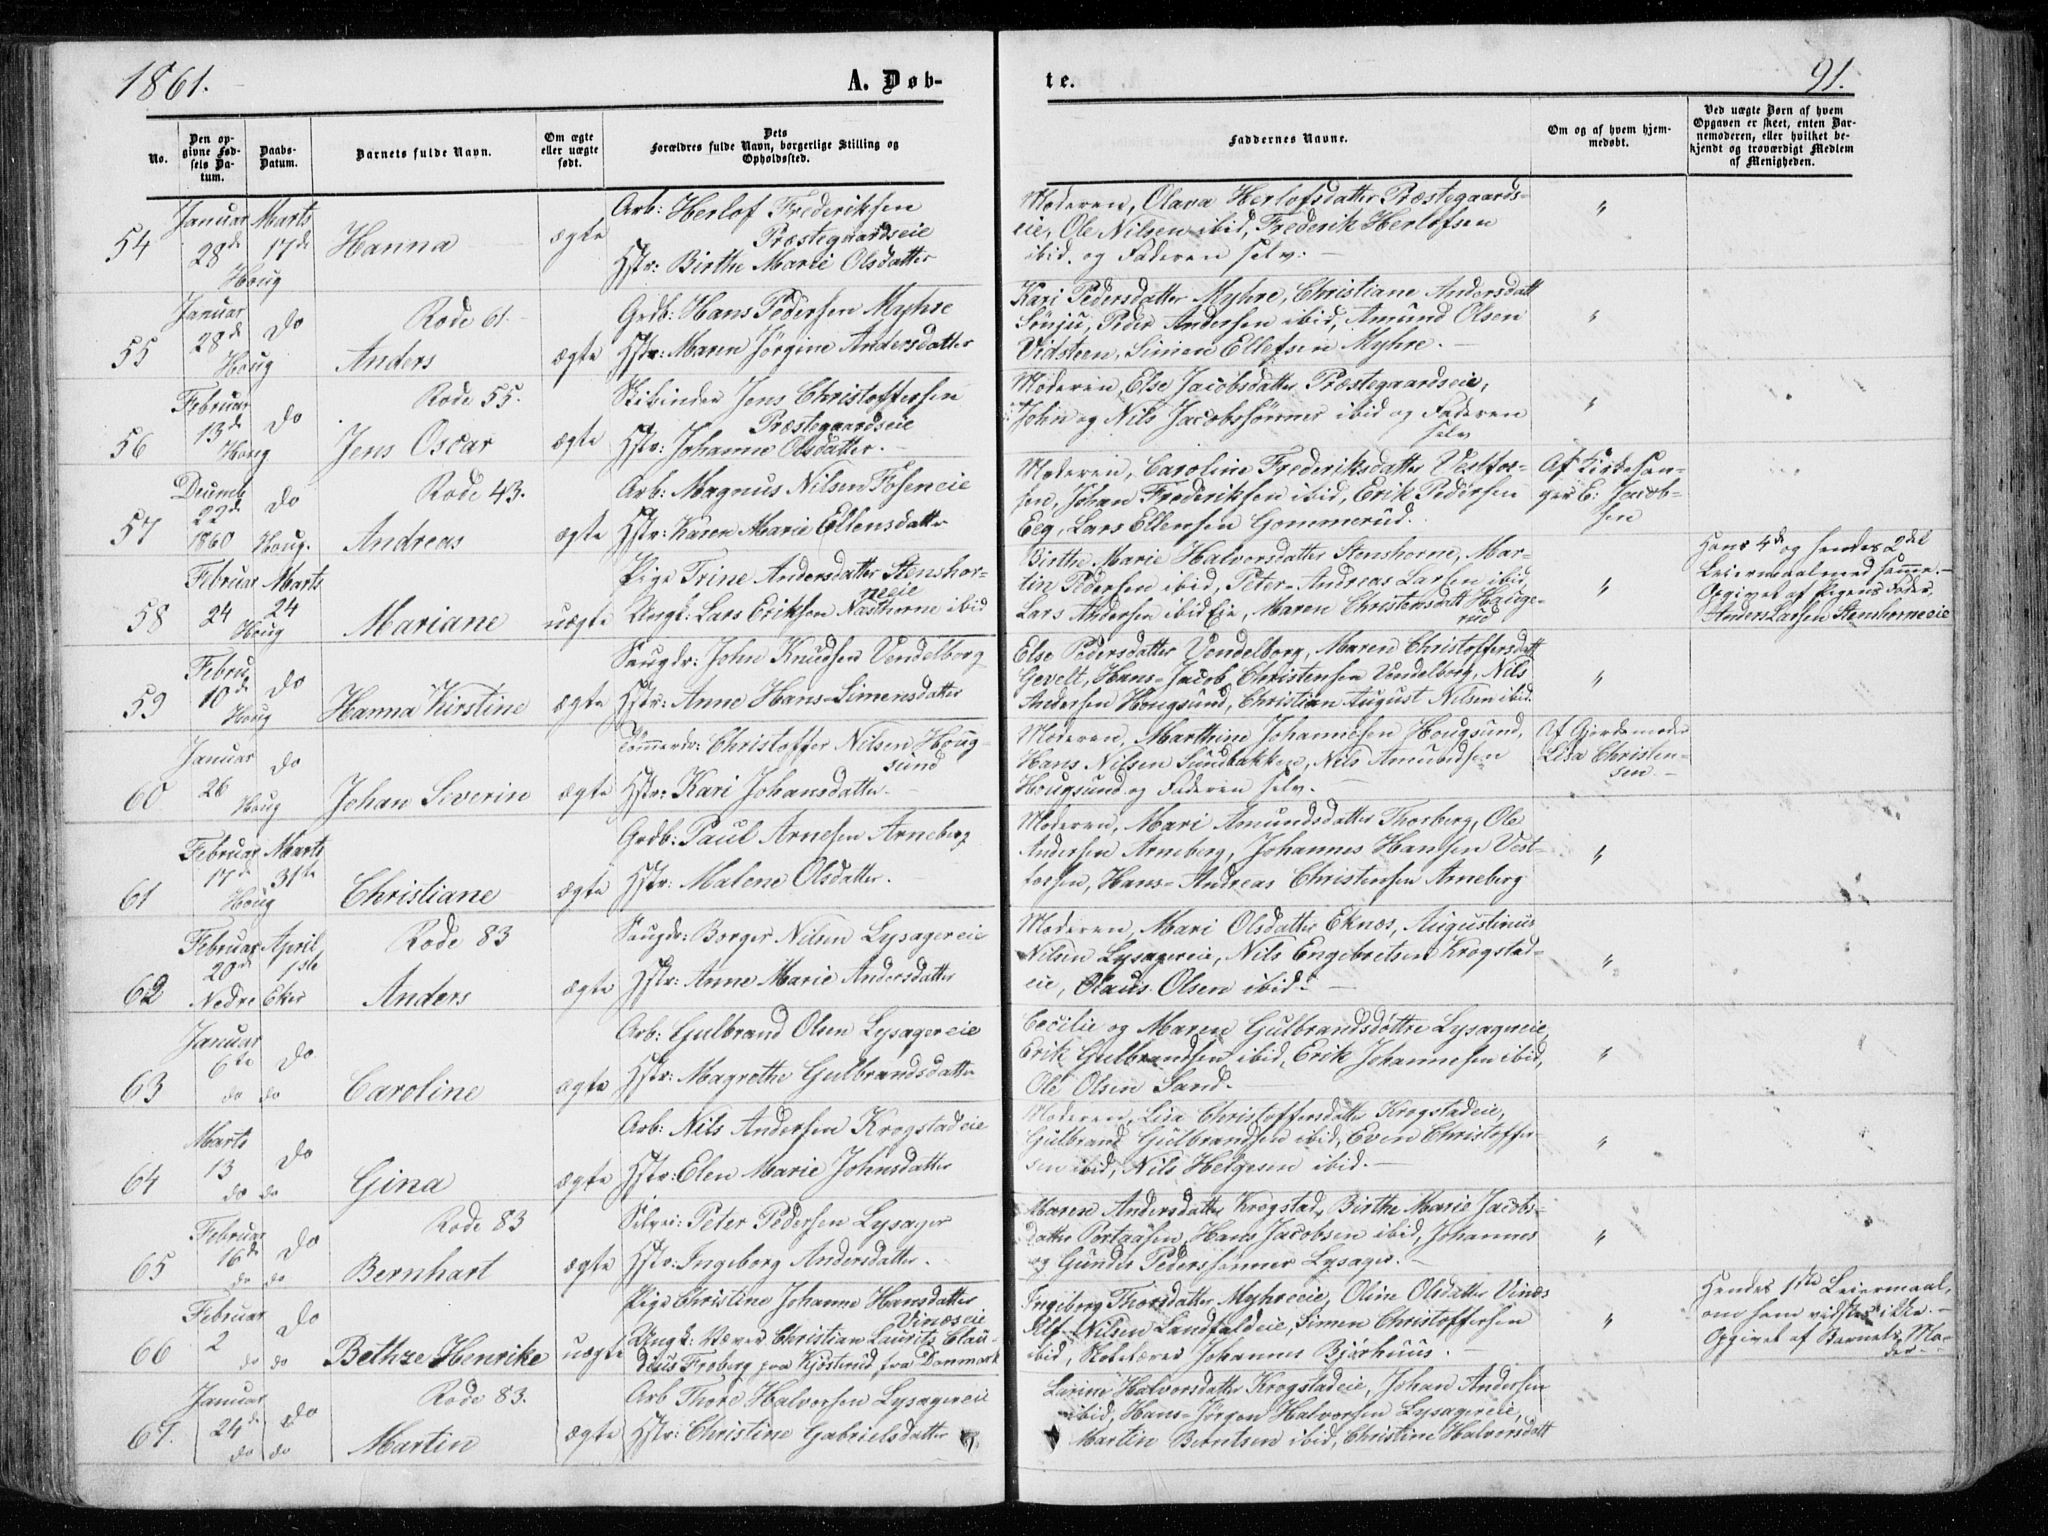 1861.
A. Døb-
te.
91.
No.
Den op-
givne Fød-
sels Da-
tum.
Daabs-
Datum.
Barnets fulde Navn.
Om ægte
eller uægte
født.
Dets
Forældres fulde Navn, borgerlige Stilling og
Opholdssted.
Faddernes Navne.
Om og af hvem hjem-
medøbt.
Ved uægte Børn af hvem
Opgaven er skeet, enten Bar-
nemoderen, eller hvilket be-
kjendt og troværdigt Medlem
af Menigheden.
54
Januar
28de
Marts
17de
Houg
Hanna
ægte
Arb: Herlof Frederiksen
Præstegaardseie
Hstr: Birthe Marie Olsdatter
Moderen, Olava Herlofsdatter Præstegaards-
eie, Ole Nilsen ibid, Frederik Herlofsen
ibid. og Faderen selv. -
"
55
Januar
28de
Do
Houg
Rode 61
Anders
ægte
Grdb: Hans Pedersen Myhre
Hstr: Maren Jørgine Andersdatter
Kari Pedersdatter Myhre, Christiane Andersdatt
Sønju, Peder Andersen ibid, Amund Olsen
Vidsteen, Simen Ellefsen Myhre. -
"
56
Februar
13de
Do
Houg
Rode 55.
Jens Oscar
ægte
Jens Christoffersen
Præstegaardseie
Hstr: Johanne Olsdatter. -
Moderen, Else Jacobsdatter Præstegaardseie,
John og Nils Jacobssønner ibid og Faderen
selv
"
57
Decemb
22de
1860
Do
Houg.
Rode 43.
Andreas
ægte
Arb: Magnus Nilsen Foseneie
Hstr: Karen Marie Ellensdatter
Moderen, Caroline Frederiksdatter Vestfos-
sen, Johan Frederiksen ibid, Erik Pedersen
Eeg, Lars Ellensen Gommerud.
Af Kirkesan-
ger E: Jacob-
sen
58
Februar
24
Marts
24
Houg
Mariane
uægte
Pige Trine Andersdatter Stenshor-
neeie
Ungk: Lars Eriksen Næsthorne ibid
Birthe Marie Halvorsdatter Stenshorne, Mar-
tin Pedersen ibid, Peter-Andreas Larsen ibid,
Lars Andersen ibid Eie, Maren Christensdatt Hauge-
rud
"
Hans 4de og hendes 2det
Leiermaal med samme. -
Opgivet af Pigens Fader,
Anders Larsen Stenshorneeie
59
Febru
10de
Do
Houg
Hanna Kirstine
ægte
Saugdr: John Knudsen Vendelborg
Hstr: Anne Hans-Simensdatter
Else Pedersdatter Vendelborg, Maren Christoffersdatt
Gevelt, Hans-Jacob Christensen Vendelborg, Nils
Andersen Hougsund, Christian August Nilsen ibid.
"
60
Januar
26
Do
Houg
Johan Severin
ægte
Tømmerdr: Christoffer Nilsen Houg-
sund
Hstr: Kari Johansdatter. -
Moderen, Marthine Johannesen Hougsund,
Hans Nilsen Sundbakken, Nils Amundsen
Hougsund og Faderen selv. -
Af Gjordemoder
Lisa Christen-
sen -
61
Februar
17de
Marts
31te
Houg
Christiane
ægte
Grdb: Paul Arnesen Arneberg
Hstr: Malene Olsdatter.
Moderen, Mari Amundsdatter Thorberg, Ole
Andersen Arneberg, Johannes Hansen Vest-
fossen, Hans-Andreas Christensen Arneberg
"
62
Februar
20de
April
1ste
Nedre Eker
Rode 83
Anders
ægte
Saugdr: Borger Nilsen Lysagereie
Hstr: Anne Marie Andersdatter
Moderen, Mari Olsdatter Eknæs, Augustinus
Nilsen Lysagereie, Nils Engebretsen Krogstad-
eie, Olaus Olsen ibid. -
"
63
Januar
6te
Do
do do
Caroline
ægte
Arb: Gulbrand Olsen Lysagereie
Hstr: Magrethe Gulbrandsdatter
Cecilie og Maren Gulbrandsdøttre Lysagereie,
Erik Gulbrandsen ibid, Erik Johannesen ibid,
Ole Olsen Sand. -
"
64
Marts
13
Do
do do
Gina
ægte
Arb: Nils Andersen Krogstadeie
Hstr: Elen Marie Johnsdatter
Moderen, Lisa Christoffersdatter Krogstadeie,
Gulbrand Gulbrandsen ibid, Even Christoffer-
sen ibid, Nils Helgesen ibid. -
"
65
Februar
16de
Do
do do
Rode 83
Bernhart
ægte
Selvei: Peter Pedersen Lysager
Hstr: Ingeborg Andersdatter. -
Maren Andersdatter Krogstad, Birthe Marie Jacobs-
datter Portaasen, Hans Jacobsen ibid, Johannes
og Gunder Pederssønner Lysager. -
"
66
Februar
2
Do
do do
Bethze Henrike
uægte
Pige Christine Johanne Hansdatter
Vinæseie
Ungk: Væver Christian Laurits Clau-
dius Froberg paa Kjøsterud fra Danmark
Ingeborg Thorsdatter Myhreeie, Oline Olsdatter Vinæs
Alf Nilsen Landfaldeie, Simen Christoffersen
ibid, Skolelærer Johannes Bjørhuus. -
"
Hendes 1ste Leiermaal,
om ham vidstes ikke. -
Opgivet af Barnets Mo-
der. -
67.
Januar
24de
Do
do do
Rode 83.
Martin
ægte
Arb Thore Halvorsen Lysagereie
Hstr: Christine Gabrielsdatter
Larine Halvorsdatter Krogstadeie, Johan Andersen
ibid, Hans-Jørgen Halvorsen Lysagereie,
Martin Berntsen ibid, Christine Halvorsdatt